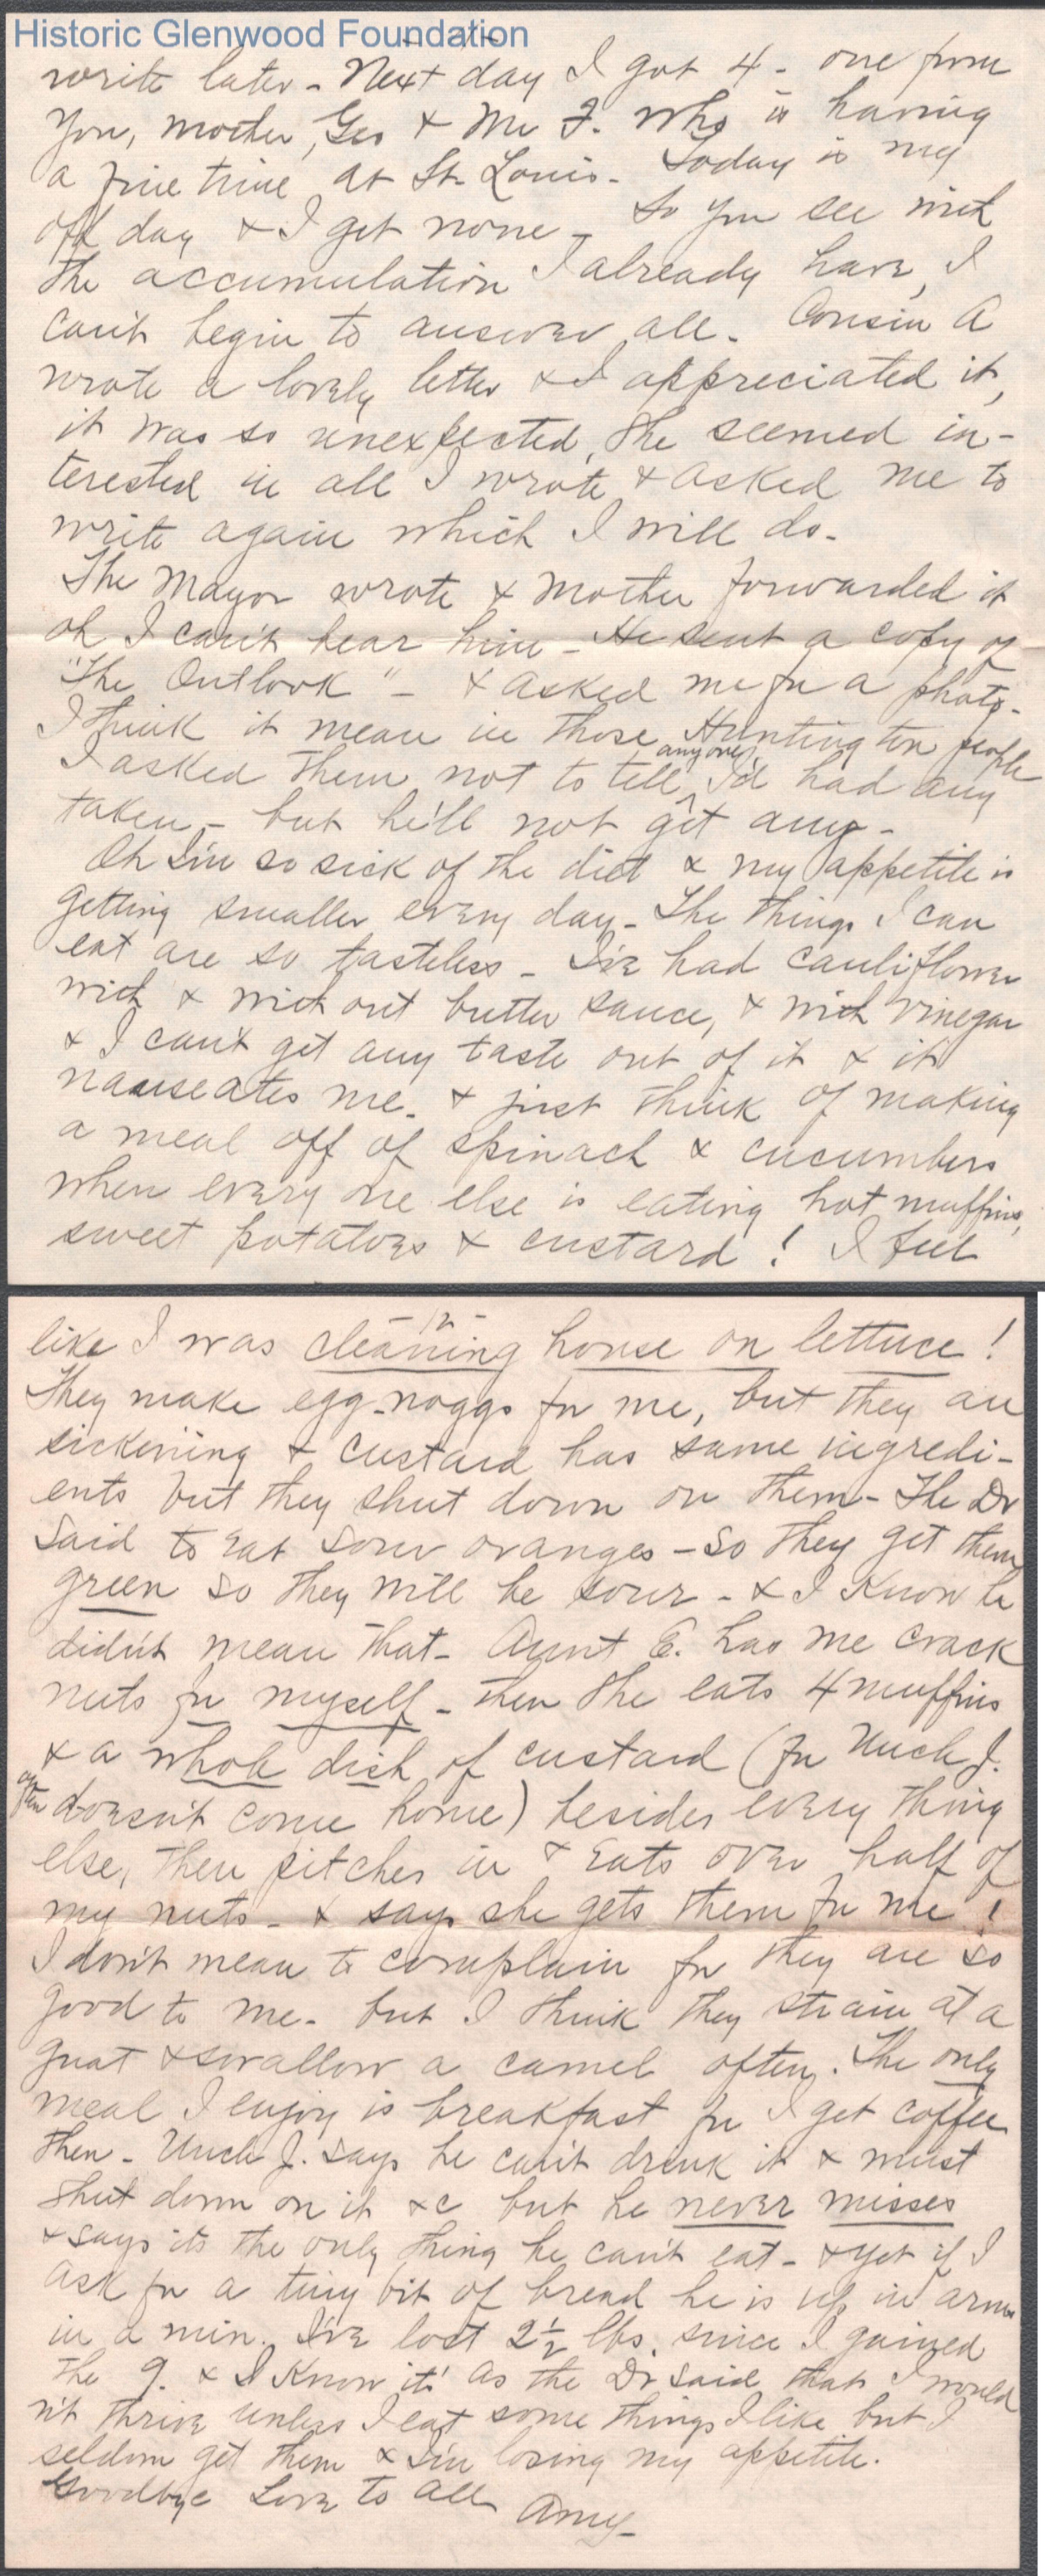 Historic Glenwood Foundation
write later - Next day I got 4 - one from
you, mother, Geo & Mr F. who is having
a fine time at St. Louis - Today is my
off day & I get none - So you see with
the accumulation I already have, I
can't begin to answer all. Cousin A
wrote a lovely letter & I appreciated it,
it was so unexpected, she seemed in-
terested in all I wrote & asked me to
write again which I will do.
The Mayor wrote & mother forwarded it
oh I can't bear him - He sent a copy of
"The Outlook" - & asked me for a photo.
I think it mean in those Huntington people
anyone
I asked them not to tell I'd had any
taken - but he'll not get any -
Oh I'm so sick of the diet & my appetite is
getting smaller every day - The things I can
eat are so tasteless - I've had cauliflower
with & without butter sauce, & with vinegar
& I can't get any taste out of it & it
nauseates me. & just think of making
a meal off of spinach & cucumbers
when every one else is eating hot muffins,
sweet potatoes & custard! I feel
-12-
like I was cleaning house on lettuce!
They make egg-noggs for me, but they are
sickening & custard has same ingredi-
ents but they shut down on them - The Dr
said to eat sour oranges - so they get them
green so they will be sour - & I know he
didn't mean that - Aunt E. has me crack
nuts for myself - then she eats 4 muffins
& a whole dish of custard (for Uncle J.
often doesn't come home) besides every thing
else, then pitches in & eats over half of
my nuts - & says she gets them for me!
I don't mean to complain for they are so
good to me - but I think they strain at a
gnat & swallow a camel often. The only
meal I enjoy is breakfast for I get coffee
then - Uncle J. says he can't drink it & must
shut down on it &c but he never misses
& says its the only thing he can't eat - & yet if I
ask for a tiny bit of bread he is up in arms
in a min. I've lost 2½ lbs. since I gained
the 9. & I know it! as the Dr said that I would
n't thrive unless I eat some things I like but I
seldom get them & I'm losing my appetite.
Goodbye Love to all Amy -